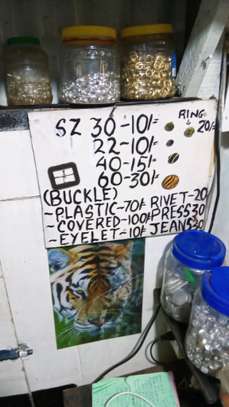 SZ 30-10/= RING
22-10/- 20/-
40-15/-
60-30/-
(BUCKLE)
~PLASTIC-70/- RIVET-20
~COVERED-100/- PRESS 30
~EYELET-10/- JEANS 30